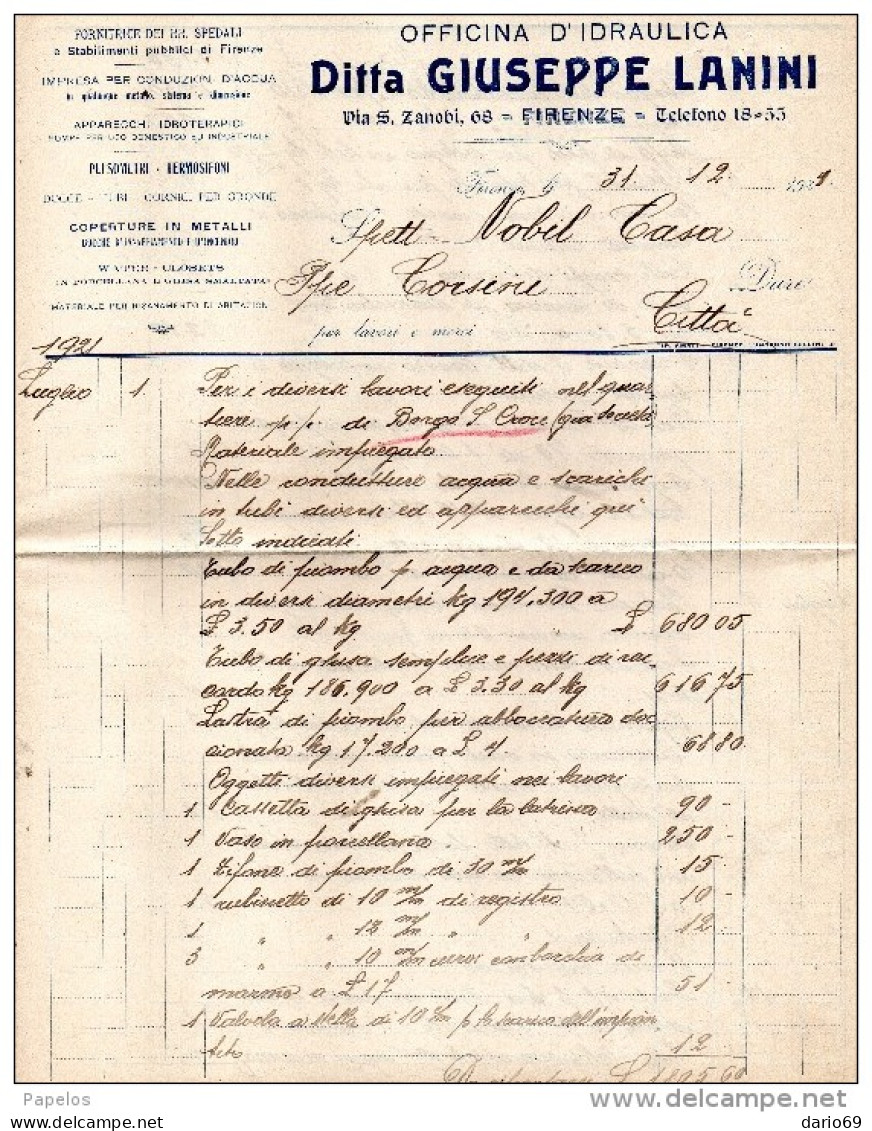 FORNITRICE DEI RR. SPEDALI
e Stabilimenti pubblici di Firenze
IMPRESA PER CONDUZIONI D'ACQUA
in qualunque metallo, sistema e dimensione
APPARECCHI IDROTERAPICI
POMPE PER USO DOMESTICO ED INDUSTRIALE
PULSOMETRI - TERMOSIFONI
DOCCE - TUBI - CORNICI PER GRONDE
COPERTURE IN METALLI
WATER-CLOSETS
IN PORCELLANA E GHISA SMALTATA
MATERIALE PER RISANAMENTO DI ABITAZIONI
OFFICINA D'IDRAULICA
Ditta GIUSEPPE LANINI
Via S. Zanobi, 68 = FIRENZE = Telefono 18-55
Firenze, li 31 12 1921.
Spett Nobil Casa
Ppe Corsini Dare
per lavori e merci Città
1921
Luglio 1. Per i diversi lavori eseguiti nel quar-
tiere p.p. di Borgo S. Croce
Materiale impiegato
Nelle condutture acqua e scarichi
in tubi diversi ed apparecchi qui
sotto indicati
Tubo di piombo p. acqua e da scarico
in diversi diametri kg 194.300 a
£ 3.50 al kg £ 680 05
Tubo di ghisa semplice e pezzi di rac-
cordo kg 186.900 a £ 3.30 al kg 616 75
Lastra di piombo per abboccatura
kg 17.200 a £ 4. 68 80
Oggetti diversi impiegati nei lavori
1 Cassetta di ghisa per la latrina 90 -
1 Vaso in porcellana 250 -
1 Sifone di piombo di 30 m/m 15 -
1 rubinetto di 10 m/m di registro 10 -
1 " " 12 m/m " " 12 -
3 " " 10 m/m con borchia di
marmo a £ 17 51 -
1 Valvola a stella di 10 m/m p. lo scarico dell'impian
to 12
£ 1805 60
Papelos
delcampe.net
dario69